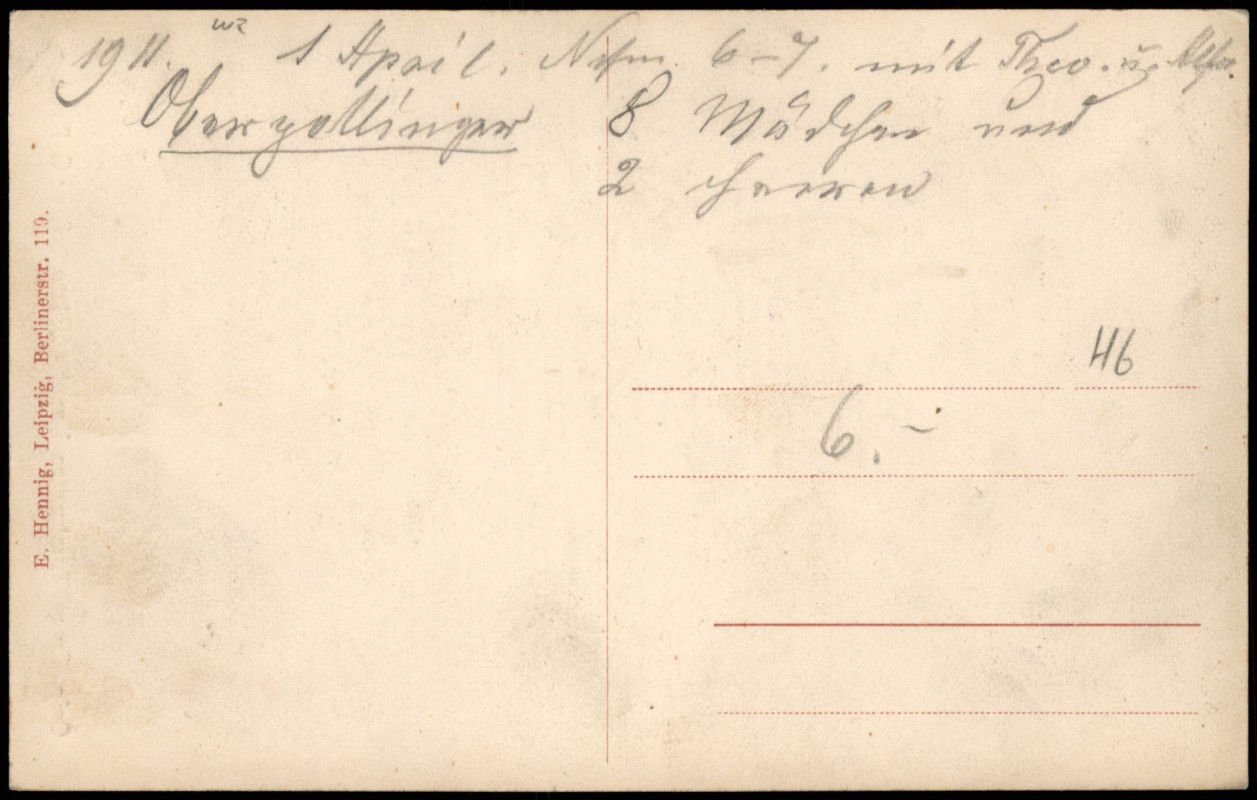 1911. 1 April. Nchm. 6-7. mit Theo. u.
Oberpollinger 8 Mädchen und
2 Herren
E. Hennig, Leipzig, Berlinerstr. 119.
H6
6.-